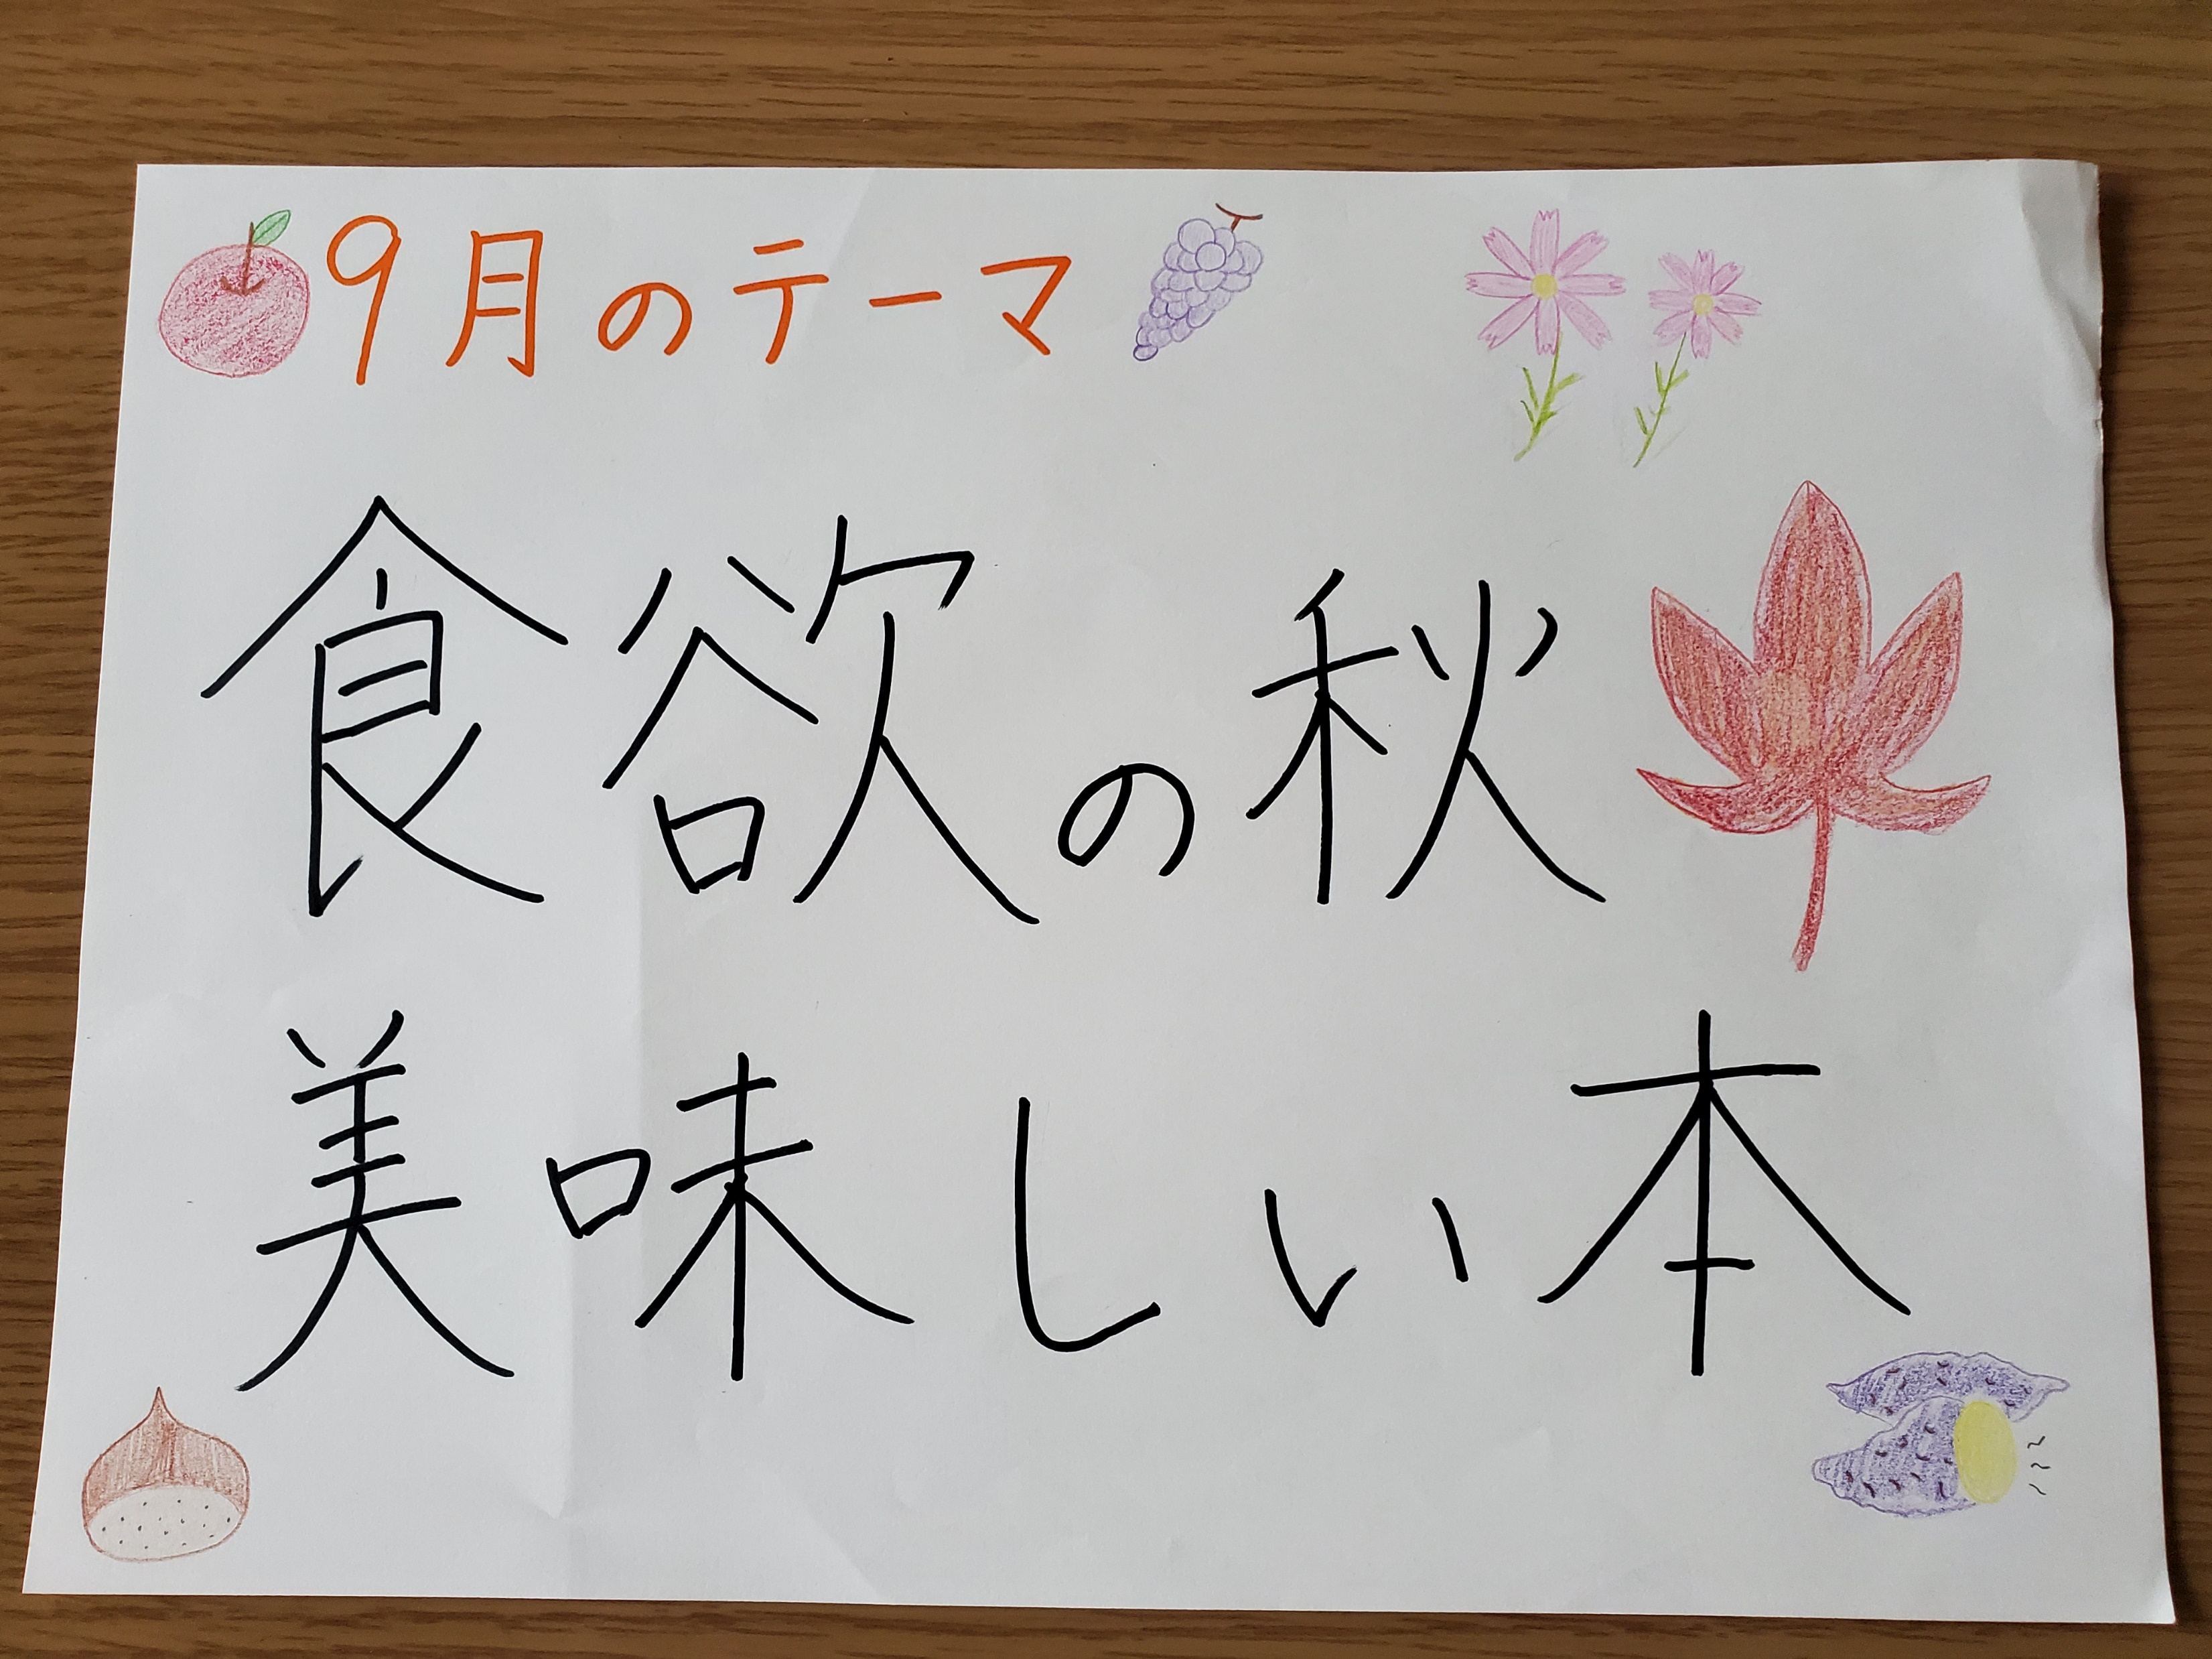 9月のテーマ
食欲の秋
美味しい本